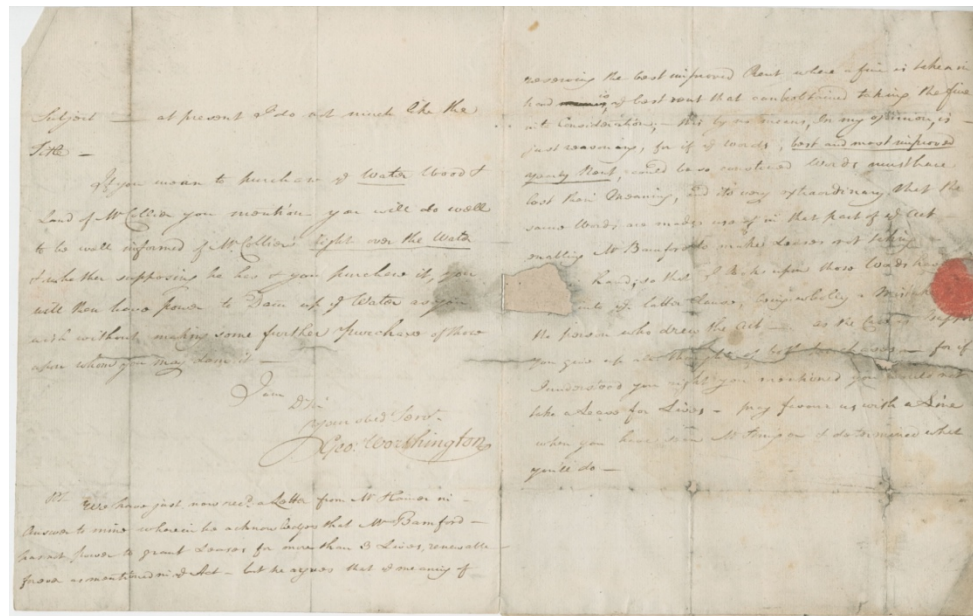 Subject — at present I do not much like the
Title —
If you mean to purchase ye Water Wood &
Land of Mr Collier you mention you will do well
to be well informed of Mr Collier's Right over the Water
& whether supposing he has & you purchase it, you
will then have power to Dam up ye Water as you
wish without making some further Purchase of those
upon whom you may Dam it —
I am
Dr Sir
your obed Servt
Geo. Worthington
PS. have just now recd a Letter from Mr Homer in
Answer to mine wherein he acknowledges that Mr Bamford —
has not power to grant Leases for more than 3 Lives, renewable
as mentioned in ye Act — but he agrees that ye meaning of
reserving the best improved Rent where a fine is taken in
hand is ye best rent that can be obtained taking the fine
into Consideration, — this by no means, in my opinion, is
just reasoning, for if ye words, best and most improved
yearly Rent, could be so construed Words must have
lost their Meaning, and its very extraordinary that the
same Words are made use of in that part of ye Act
enabling Mr Bamford to make Leases not taking
hand, so that I think upon those Words
ye latter Clause, being wholly a
the person who drew the Act — as the Case is
you give up all thoughts of — for if
I understood you right you mentioned you would not
take a Lease for Lives — pray favour us with a Line
when you have seen Mr & determined what
you'll do —